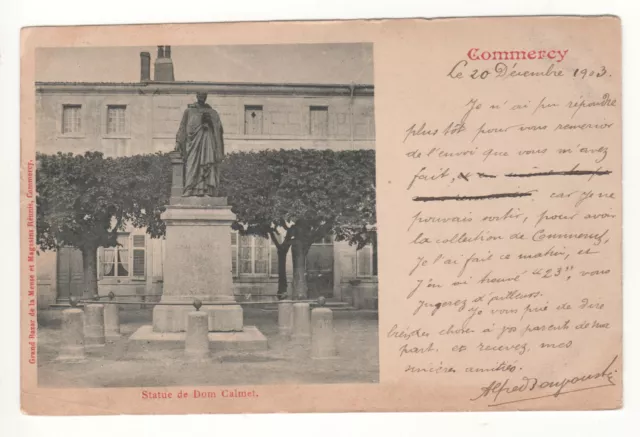 Commercy
Le 20 Décembre 1903.
Je n'ai pu répondre
plus tôt pour vous remercier
de l'envoi que vous m'avez
fait, car je ne
pouvais sortir, pour avoir
la collection de Commercy,
Je l'ai fait ce matin, et
j'en ai trouvé "23", vous
jugerez d'ailleurs.
Je vous prie de dire
bien des choses à vos parents de ma
part, et recevez, mes
sincères amitiés.
Alfred
Grand Bazar de la Meuse et Magasins Réunis, Commercy.
Statue de Dom Calmet.